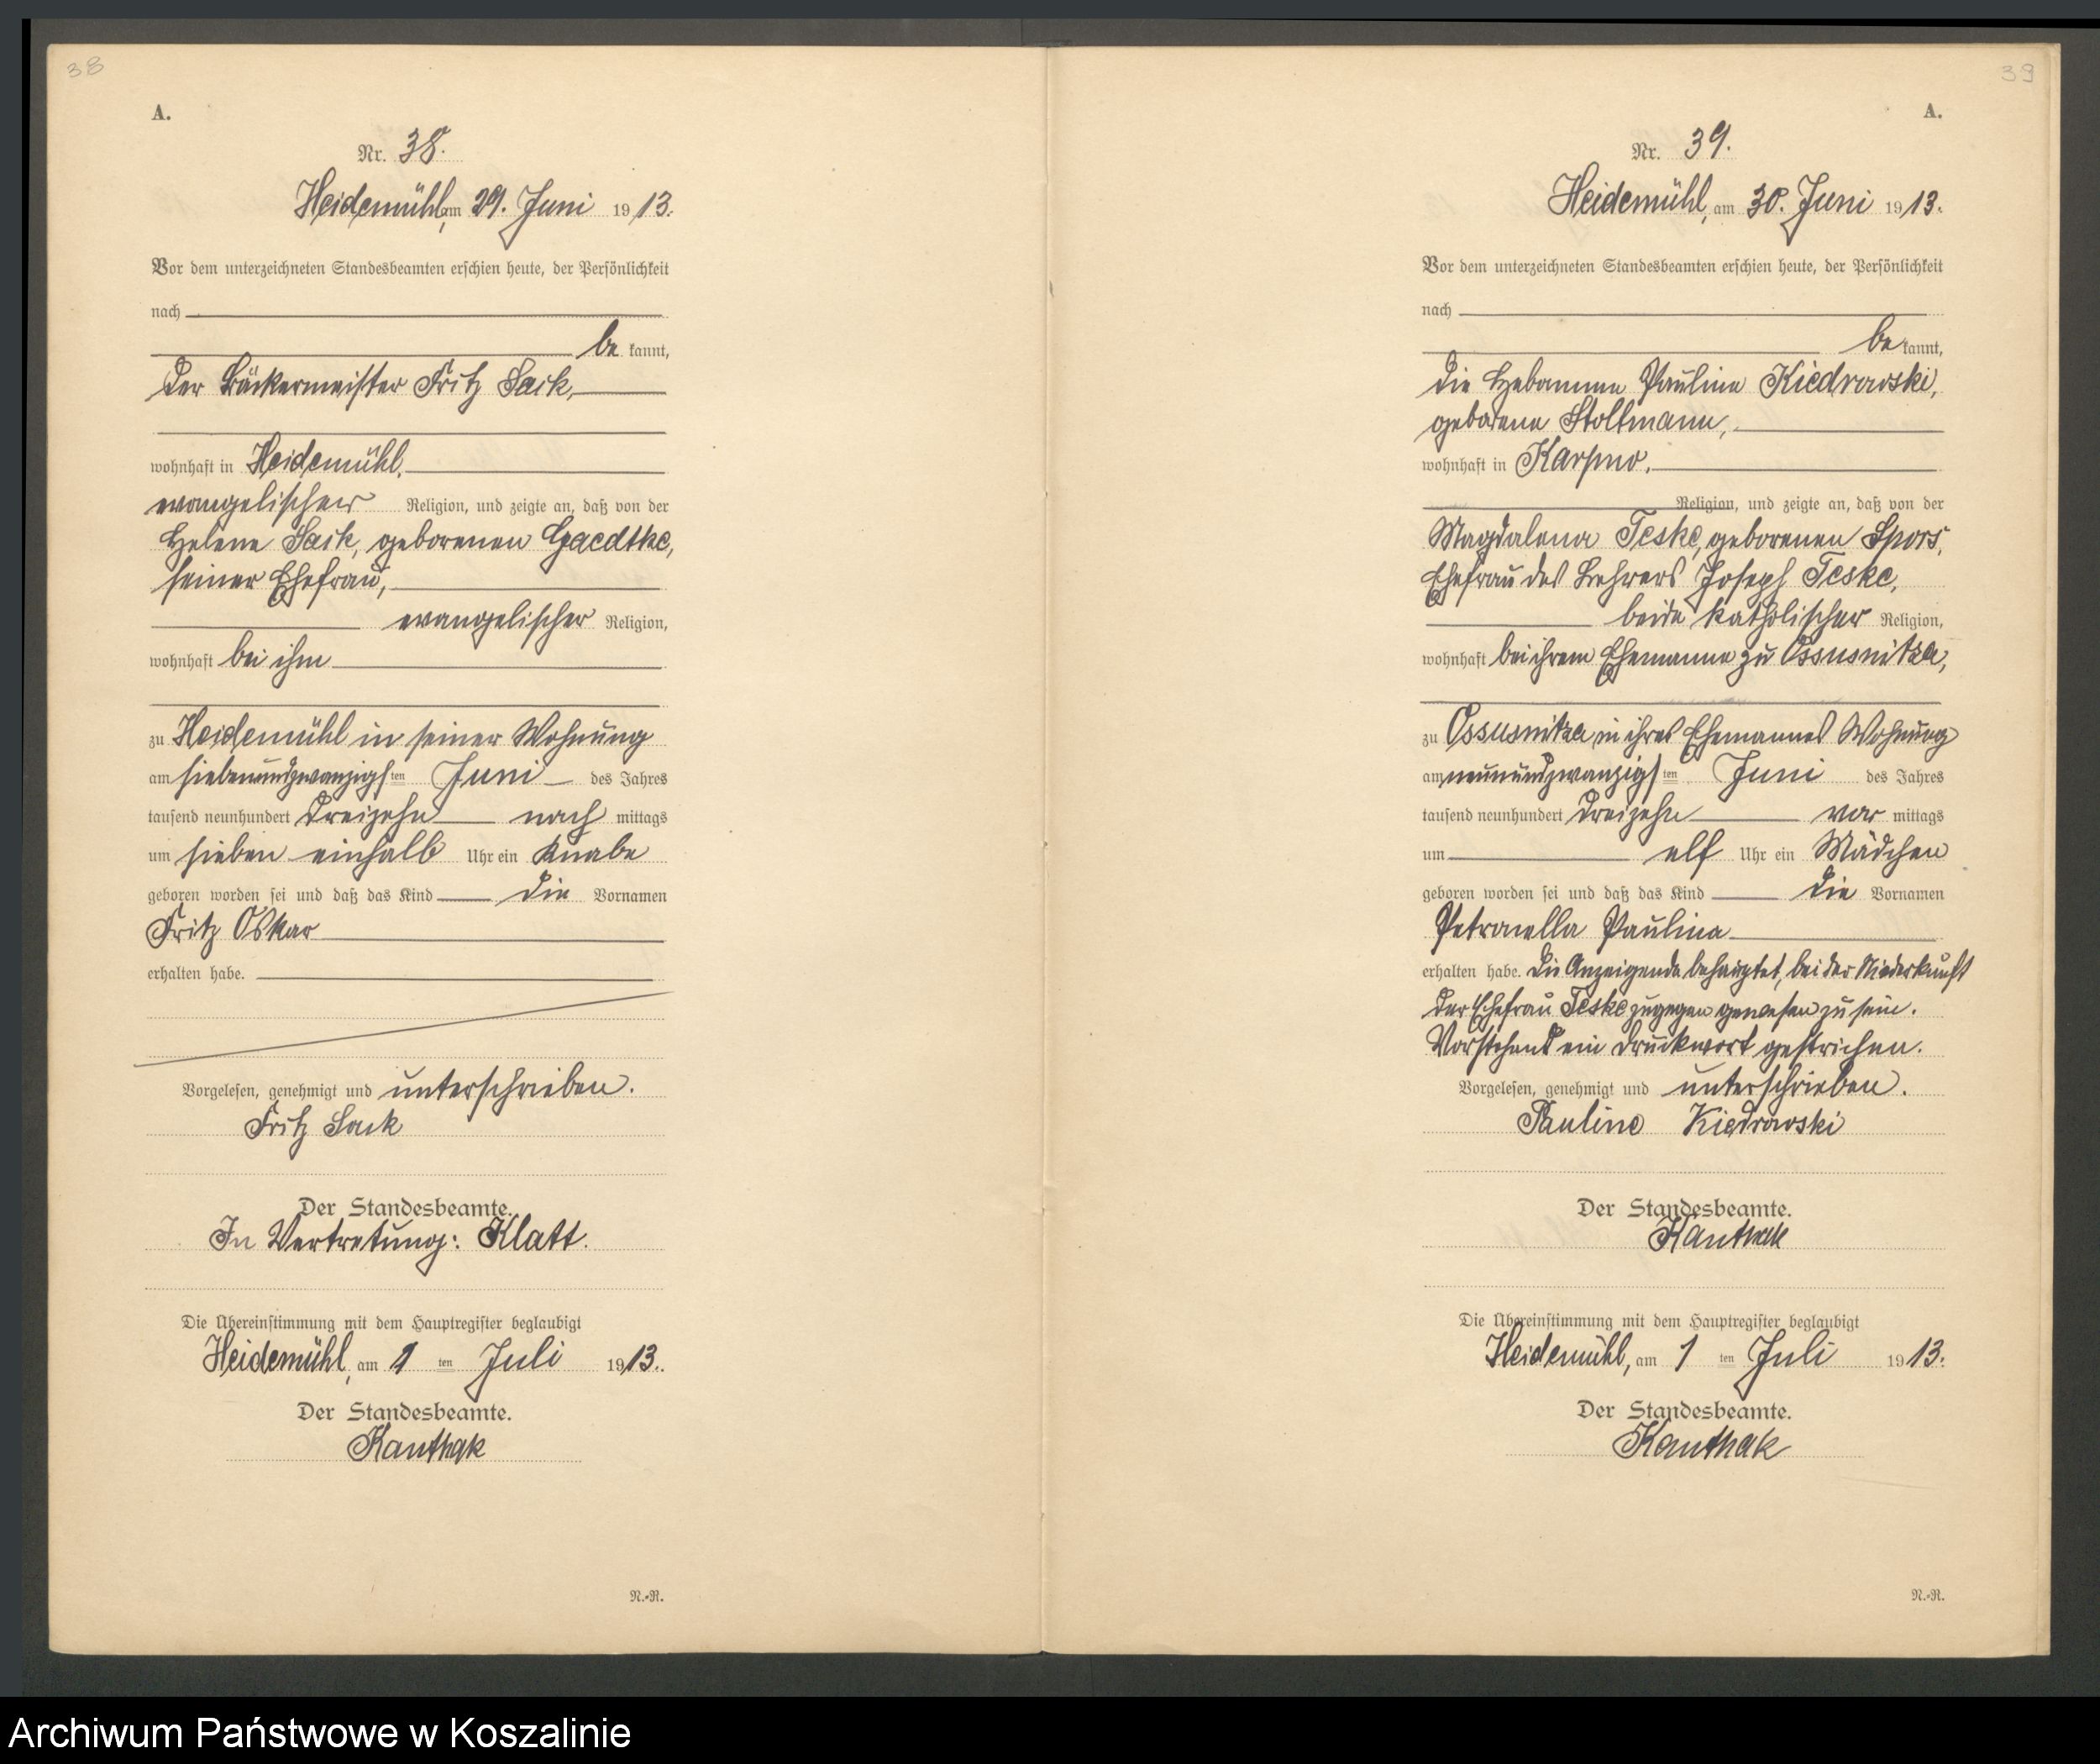 38
A.
Nr. 38.
Heidemühl, am 29. Juni 1913.
Vor dem unterzeichneten Standesbeamten erschien heute, der Persönlichkeit
nach
be kannt,
der Bäckermeister Fritz Sack,
wohnhaft in Heidemühl,
evangelischer Religion, und zeigte an, daß von der
Helene Sack, geborenen Gaedtke,
seiner Ehefrau,
evangelischer Religion,
wohnhaft bei ihm
zu Heidemühl in seiner Wohnung
am siebenundzwanzigsten Juni des Jahres
tausend neunhundert dreizehn nach mittags
um sieben einhalb Uhr ein Knabe
geboren worden sei und daß das Kind die Vornamen
Fritz Oskar
erhalten habe.
Vorgelesen, genehmigt und unterschrieben.
Fritz Sack
Der Standesbeamte.
In Vertretung: Klatt.
Die Übereinstimmung mit dem Hauptregister beglaubigt
Heidemühl, am 1 ten Juli 1913.
Der Standesbeamte.
Kanthak
N.-R.
39
A.
Nr. 39.
Heidemühl, am 30. Juni 1913.
Vor dem unterzeichneten Standesbeamten erschien heute, der Persönlichkeit
nach
be kannt,
die Hebamme Pauline Kiedrowski,
geborene Stoltmann,
wohnhaft in Karpno,
Religion, und zeigte an, daß von der
Magdalena Teske, geborenen Spors,
Ehefrau des Lehrers Joseph Teske,
beide katholischer Religion,
wohnhaft bei ihrem Ehemanne zu Ossusnitza,
zu Ossusnitza in ihres Ehemannes Wohnung
am neunundzwanzigsten Juni des Jahres
tausend neunhundert dreizehn vor mittags
um elf Uhr ein Mädchen
geboren worden sei und daß das Kind die Vornamen
Petronella Paulina
erhalten habe. Die Anzeigende behauptet, bei der Niederkunft
der Ehefrau Teske zugegen gewesen zu sein.
Vorstehend ein Druckwort gestrichen.
Vorgelesen, genehmigt und unterschrieben.
Pauline Kiedrowski
Der Standesbeamte.
Kanthak
Die Übereinstimmung mit dem Hauptregister beglaubigt
Heidemühl, am 1 ten Juli 1913.
Der Standesbeamte.
Kanthak
N.-R.
Archiwum Państwowe w Koszalinie